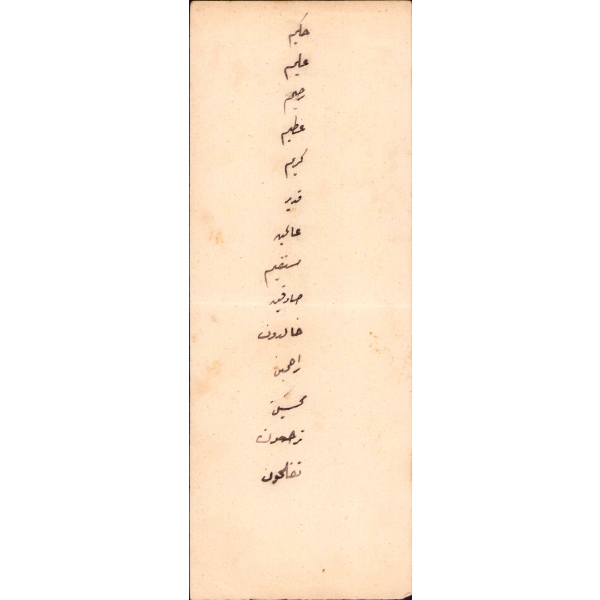 حكيم
عليم
رحيم
عظيم
كريم
قدير
عالمين
مستقيم
صادقين
خالدون
راحمين
محسنين
ترجعون
تفلحون